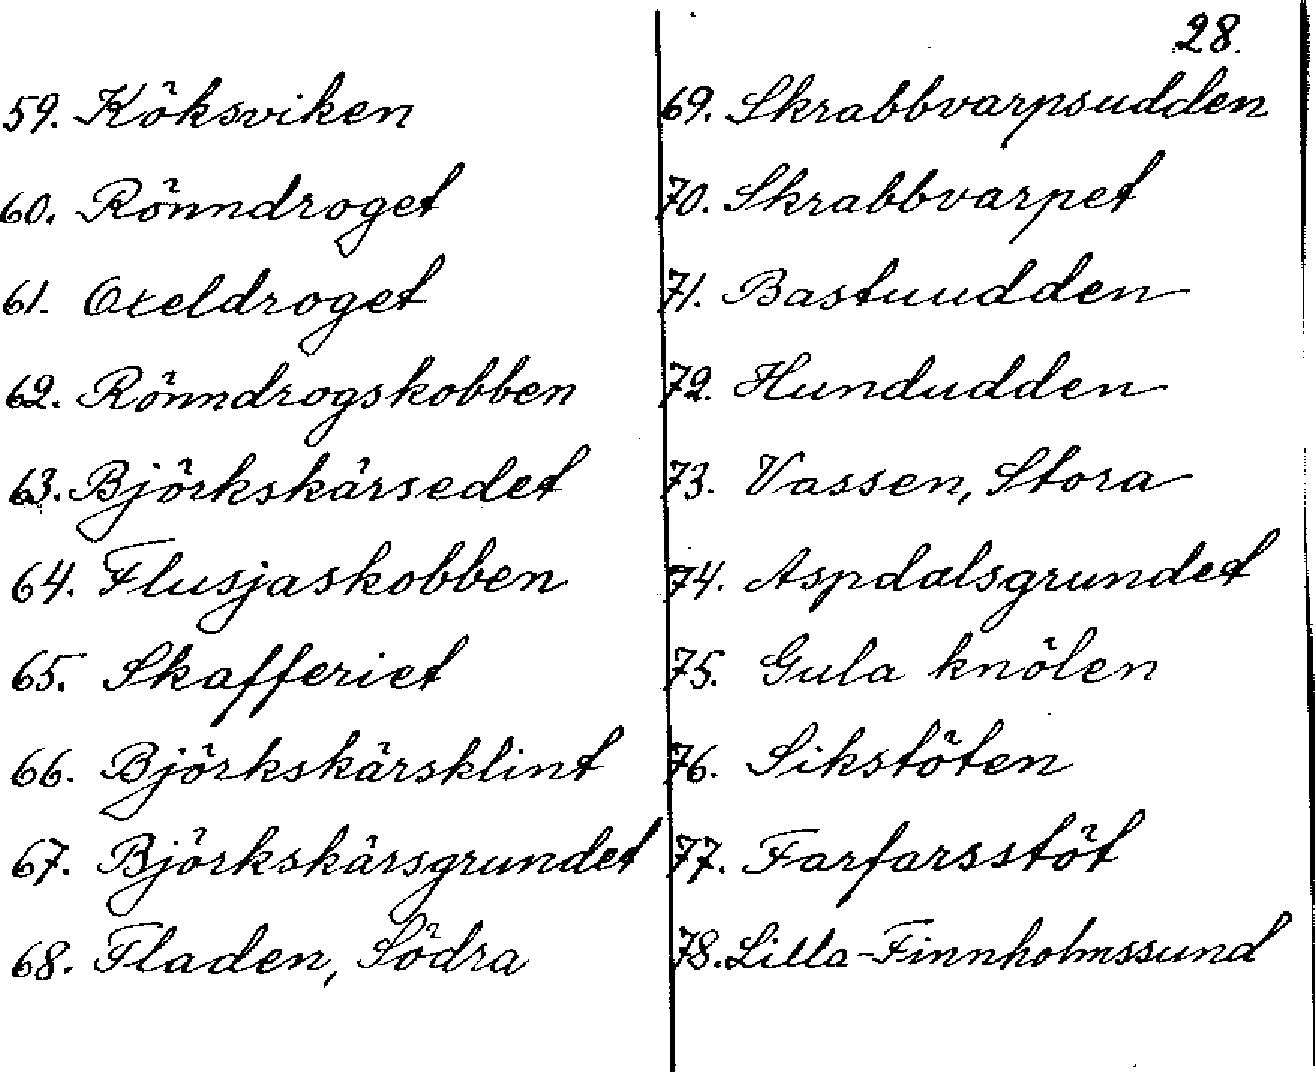 28.
59. Köksviken
60. Rönndroget
61. Oxeldroget
62. Rönndrogskobben
63. Björkskärsedet
64. Flusjaskobben
65. Skafferiet
66. Björkskärsklint
67. Björkskärsgrundet
68. Fladen, Södra
69. Skrabbvarpsudden
70. Skrabbvarpet
71. Bastuudden
72. Hundudden
73. Vassen, Stora
74. Aspdalsgrundet
75. Gula knölen
76. Sikstöten
77. Farfarsstöt
78. Lilla-Finnholmssund